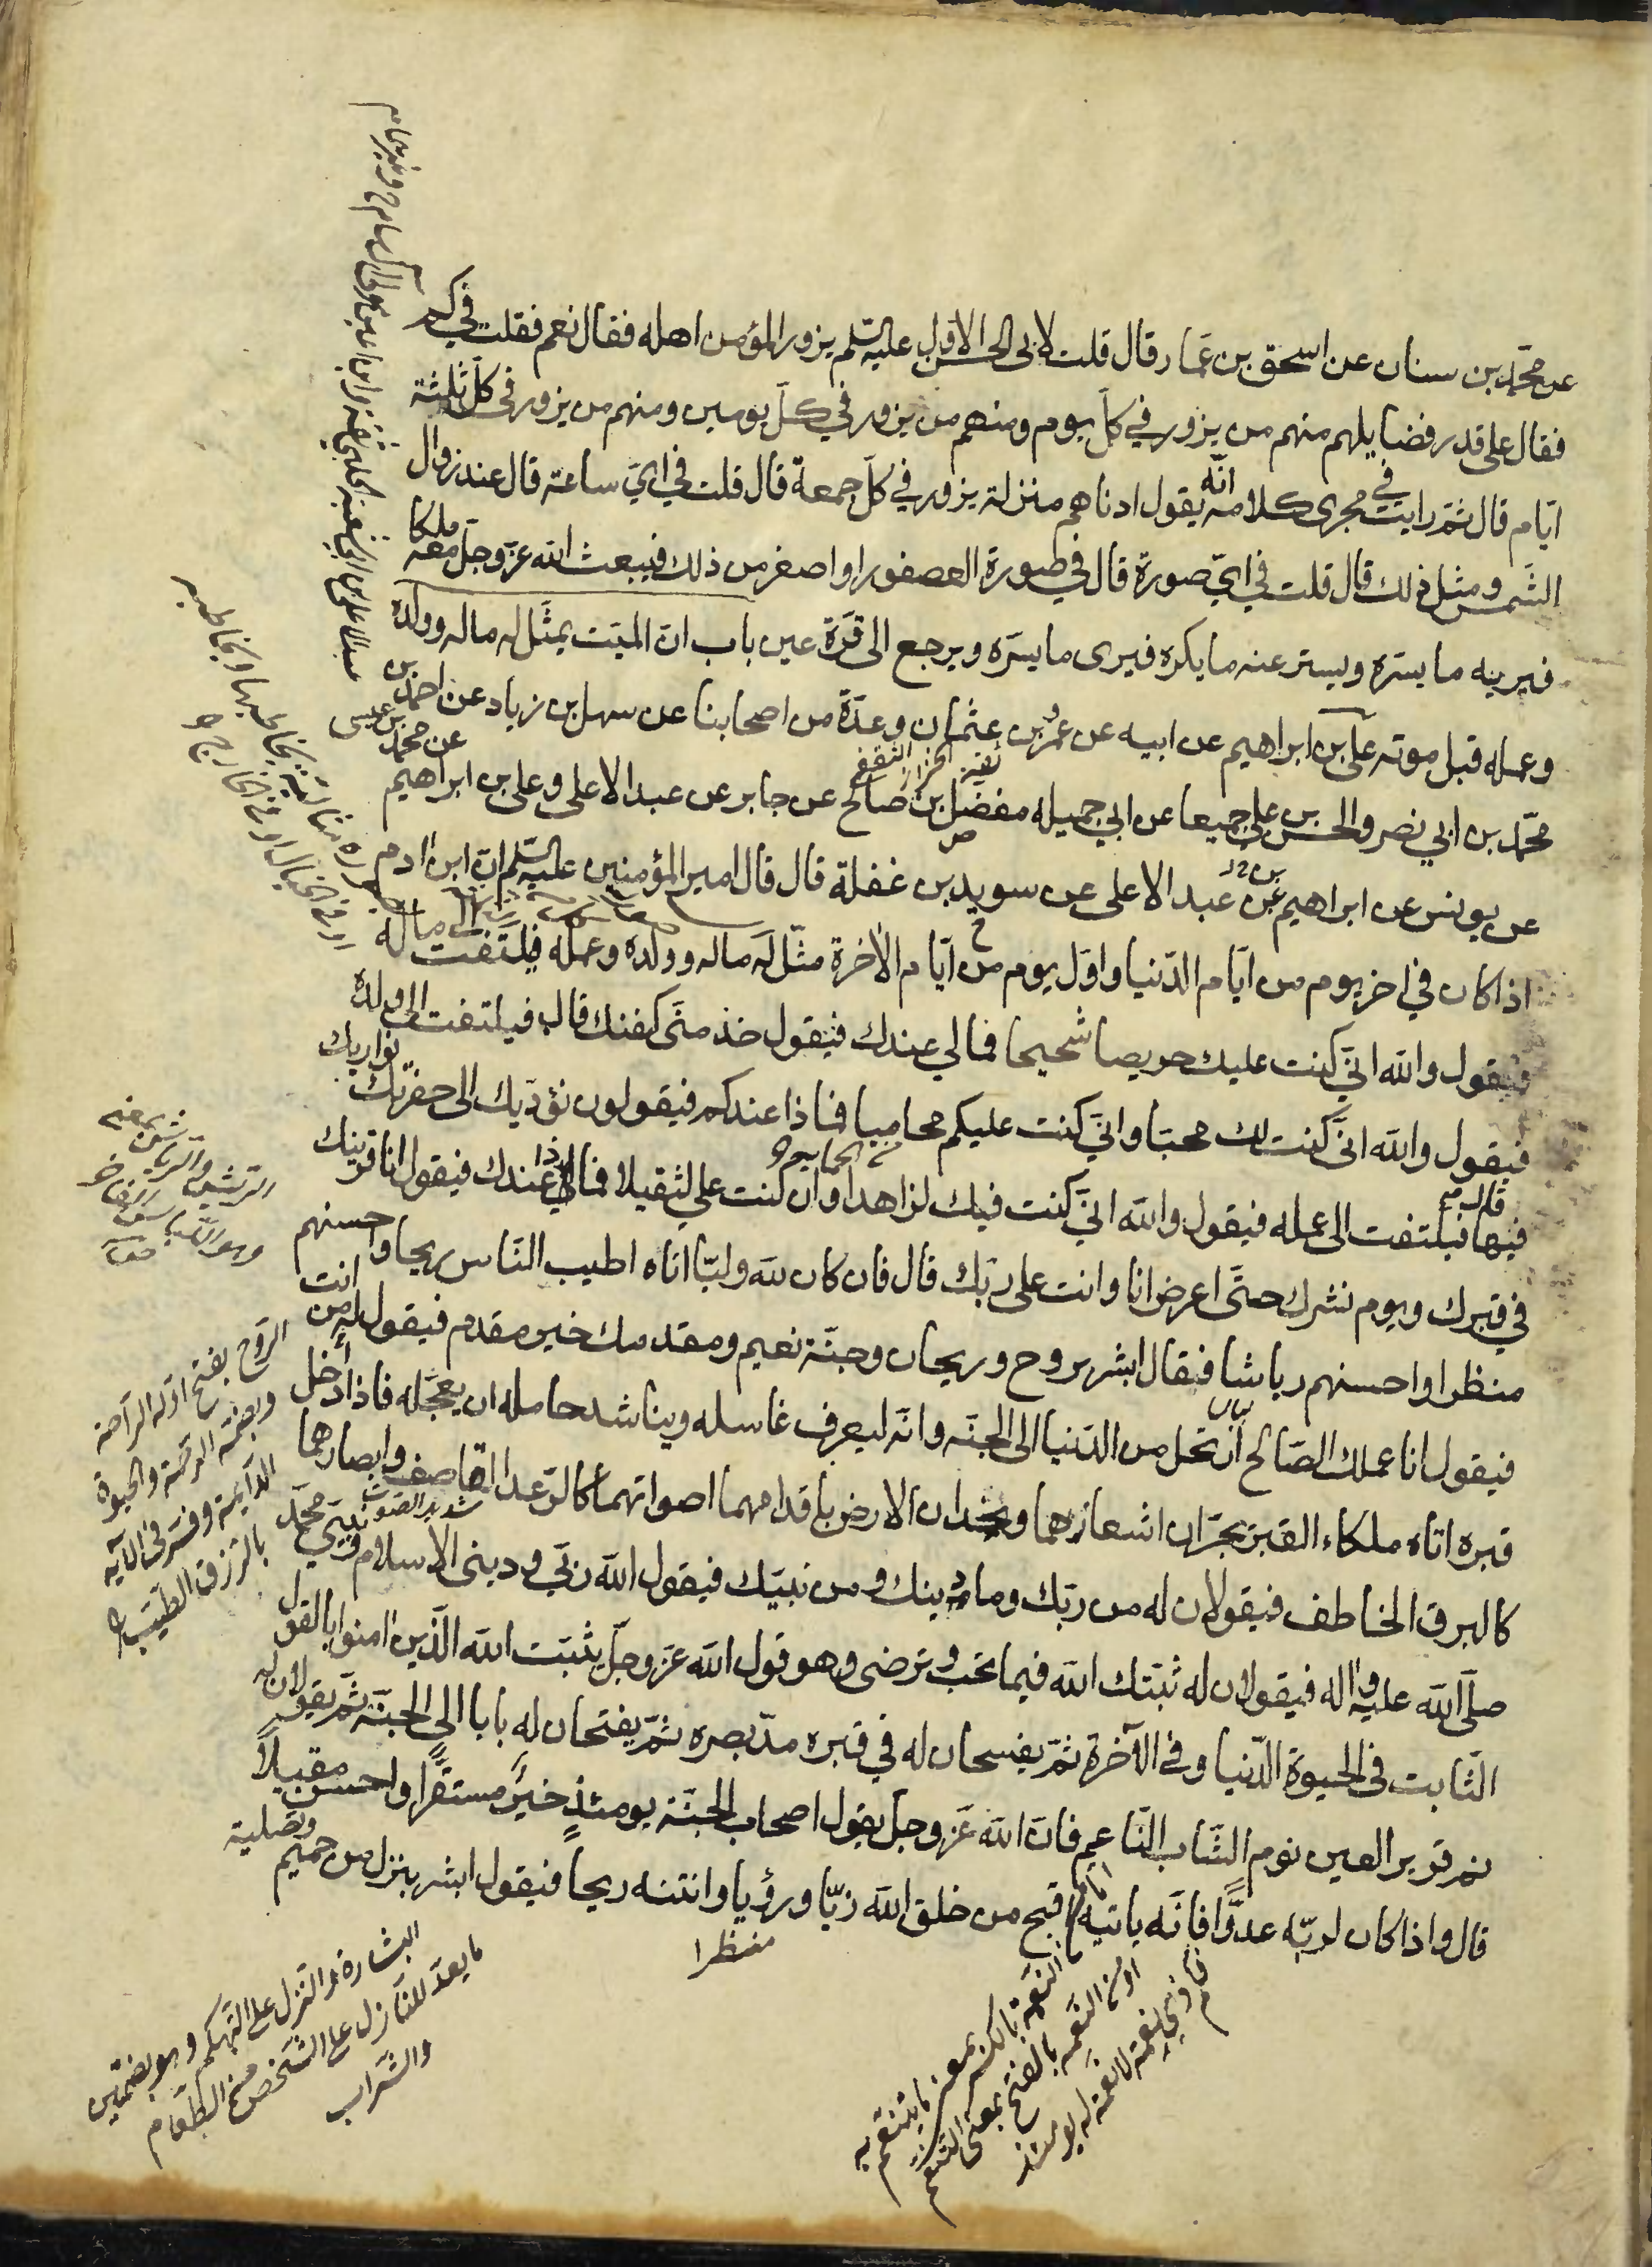 عن محمّد بن سنان عن اسحق بن عمّار قال قلت لابى الحسن الاول عليه السّلم يزور المؤمن اهله فقال نعم فقلت في كم
فقال على قدر فضايلهم منهم من يزور في كلّ يوم ومنهم من يزور في كلّ يومين ومنهم من يزور فى كلّ ثلثة
ايّام قال ثمّ رايت في مجرى كلامه انّه يقول ادناهم منزلة يزور في كلّ جمعة قال قلت في ايّ ساعة قال عند زوال
الشّمس ومثل ذلك قال قلت في ايّ صورة قال في صورة العصفور او اصغر من ذلك فيبعث الله عزّ وجلّ معه ملكا
فيريه ما يسرّه ويستر عنه ما يكره فيرى ما يسرّه ويرجع الى قرّة عين باب انّ الميّت يمثّل له ماله وولده
وعمله قبل موته على بن ابراهيم عن ابيه عن عمرو بن عثمان وعدّة من اصحابنا عن سهل بن زياد عن احمد بن
محمّد بن ابي نصر والحسن بن على جميعا عن ابي جميله مفضّل بن صالح عن جابر عن عبد الاعلى وعلى بن ابراهيم
عن محمّد بن عيسى
عن يونس عن ابراهيم عن عبد الاعلى عن سويد بن غفلة قال قال امير المؤمنين عليه السّلم انّ ابن ادم
اذا كان في اخر يوم من ايّام الدّنيا واوّل يوم من ايّام الاخرة مثّل له ماله وولده وعمله فيلتفت الى ماله
فيقول والله انّي كنت عليك حريصا شحيحا فمالي عندك فيقول خذ منّى كفنك قال فيلتفت الى ولده
فيقول والله انّى كنت لك محبّا وانّي كنت عليكم محاميا فماذا عندكم فيقولون نؤدّيك الى حفرتك نواريك
فيها قال فيلتفت الى عمله فيقول والله انّي كنت فيك لزاهدا وان كنت على لثقيلا فماذا عندك فيقول انا قرينك
في قبرك ويوم نشرك حتّى اعرض انا وانت على ربّك قال فان كان لله وليّا اتاه اطيب النّاس ريحا واحسنهم
منظرا واحسنهم رياشا فيقال ابشر بروح وريحان وجنّة نعيم ومقدمك خير مقدم فيقول له من انت
فيقول انا عملك الصّالح ارتحل من الدّنيا الى الجنّه وانّه ليعرف غاسله ويناشد حامله ان يعجّله فاذا أدخل
قبره اتاه ملكاء القبر يجرّان اشعارهما ويخدّان الارض باقدامهما اصواتهما كالرّعد القاصف وابصارهما
شديد الصّوت
كالبرق الخاطف فيقولان له من ربّك وما دينك ومن نبيّك فيقول الله ربّي وديني الاسلام ونبيّي محمّد
صلّى الله عليه واله فيقولان له ثبّتك الله فيما تحبّ وترضى وهو قول الله عزّ وجلّ يثبّت الله الّذين امنوا بالقول
الثّابت فى الحيوة الدّنيا وفي الآخرة ثمّ يفسحان له في قبره مدّ بصره ثمّ يفتحان له بابا الى الجنّة ثمّ يقولان له
نم قرير العين نوم الشّاب النّاعم فانّ الله عزّ وجلّ يقول اصحاب الجنّة يومئذٍ خيرٌ مستقرّا واحسن مقيلاً
قال واذا كان لربّه عدوًّا فانّه ياتيه اقبح من خلق الله زيّا ورؤيا وانتنه ريحا فيقول ابشر بنزل من حميم وتصلية
منظرا
الرّوح بفتح اوّله الرّاحة
وبضمّه الرحمة والحيوة
الدّائمة وفسّر فى الآية
بالرّزق الطيّب
البشارة والنّزل على التّهكم وهو بضمّتين
ما يعدّ للنّازل على الشّخص من الطّعام
والشّراب
النّعمة بالكسر بمعنى ما يتنعّم به
او من النّعمة بالفتح بمعنى التّنعّم